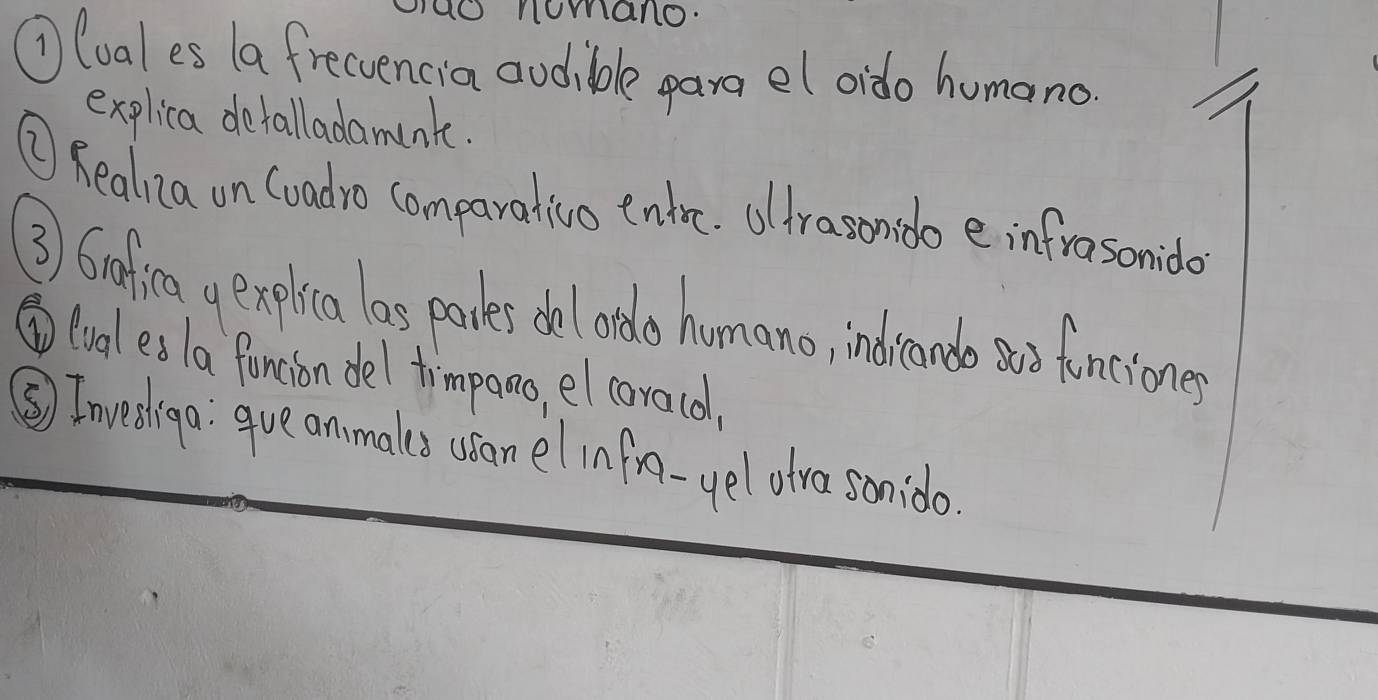 oido humano.
① Cual es la frecuencia audible para el oido humano.
explica detalladamente.
② Realiza un Cuadro comparativo entre. Ultrasonido e infrasonido
③ Grafica y explica las partes del oido humano, indicando sus funciones
④ Cual es la funcion del timpano, el caracol,
⑤ Investiga: que animales usan el infra-y el utra sonido.